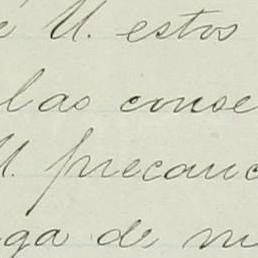 é U. estos
las conse
U. precauc
ga de m